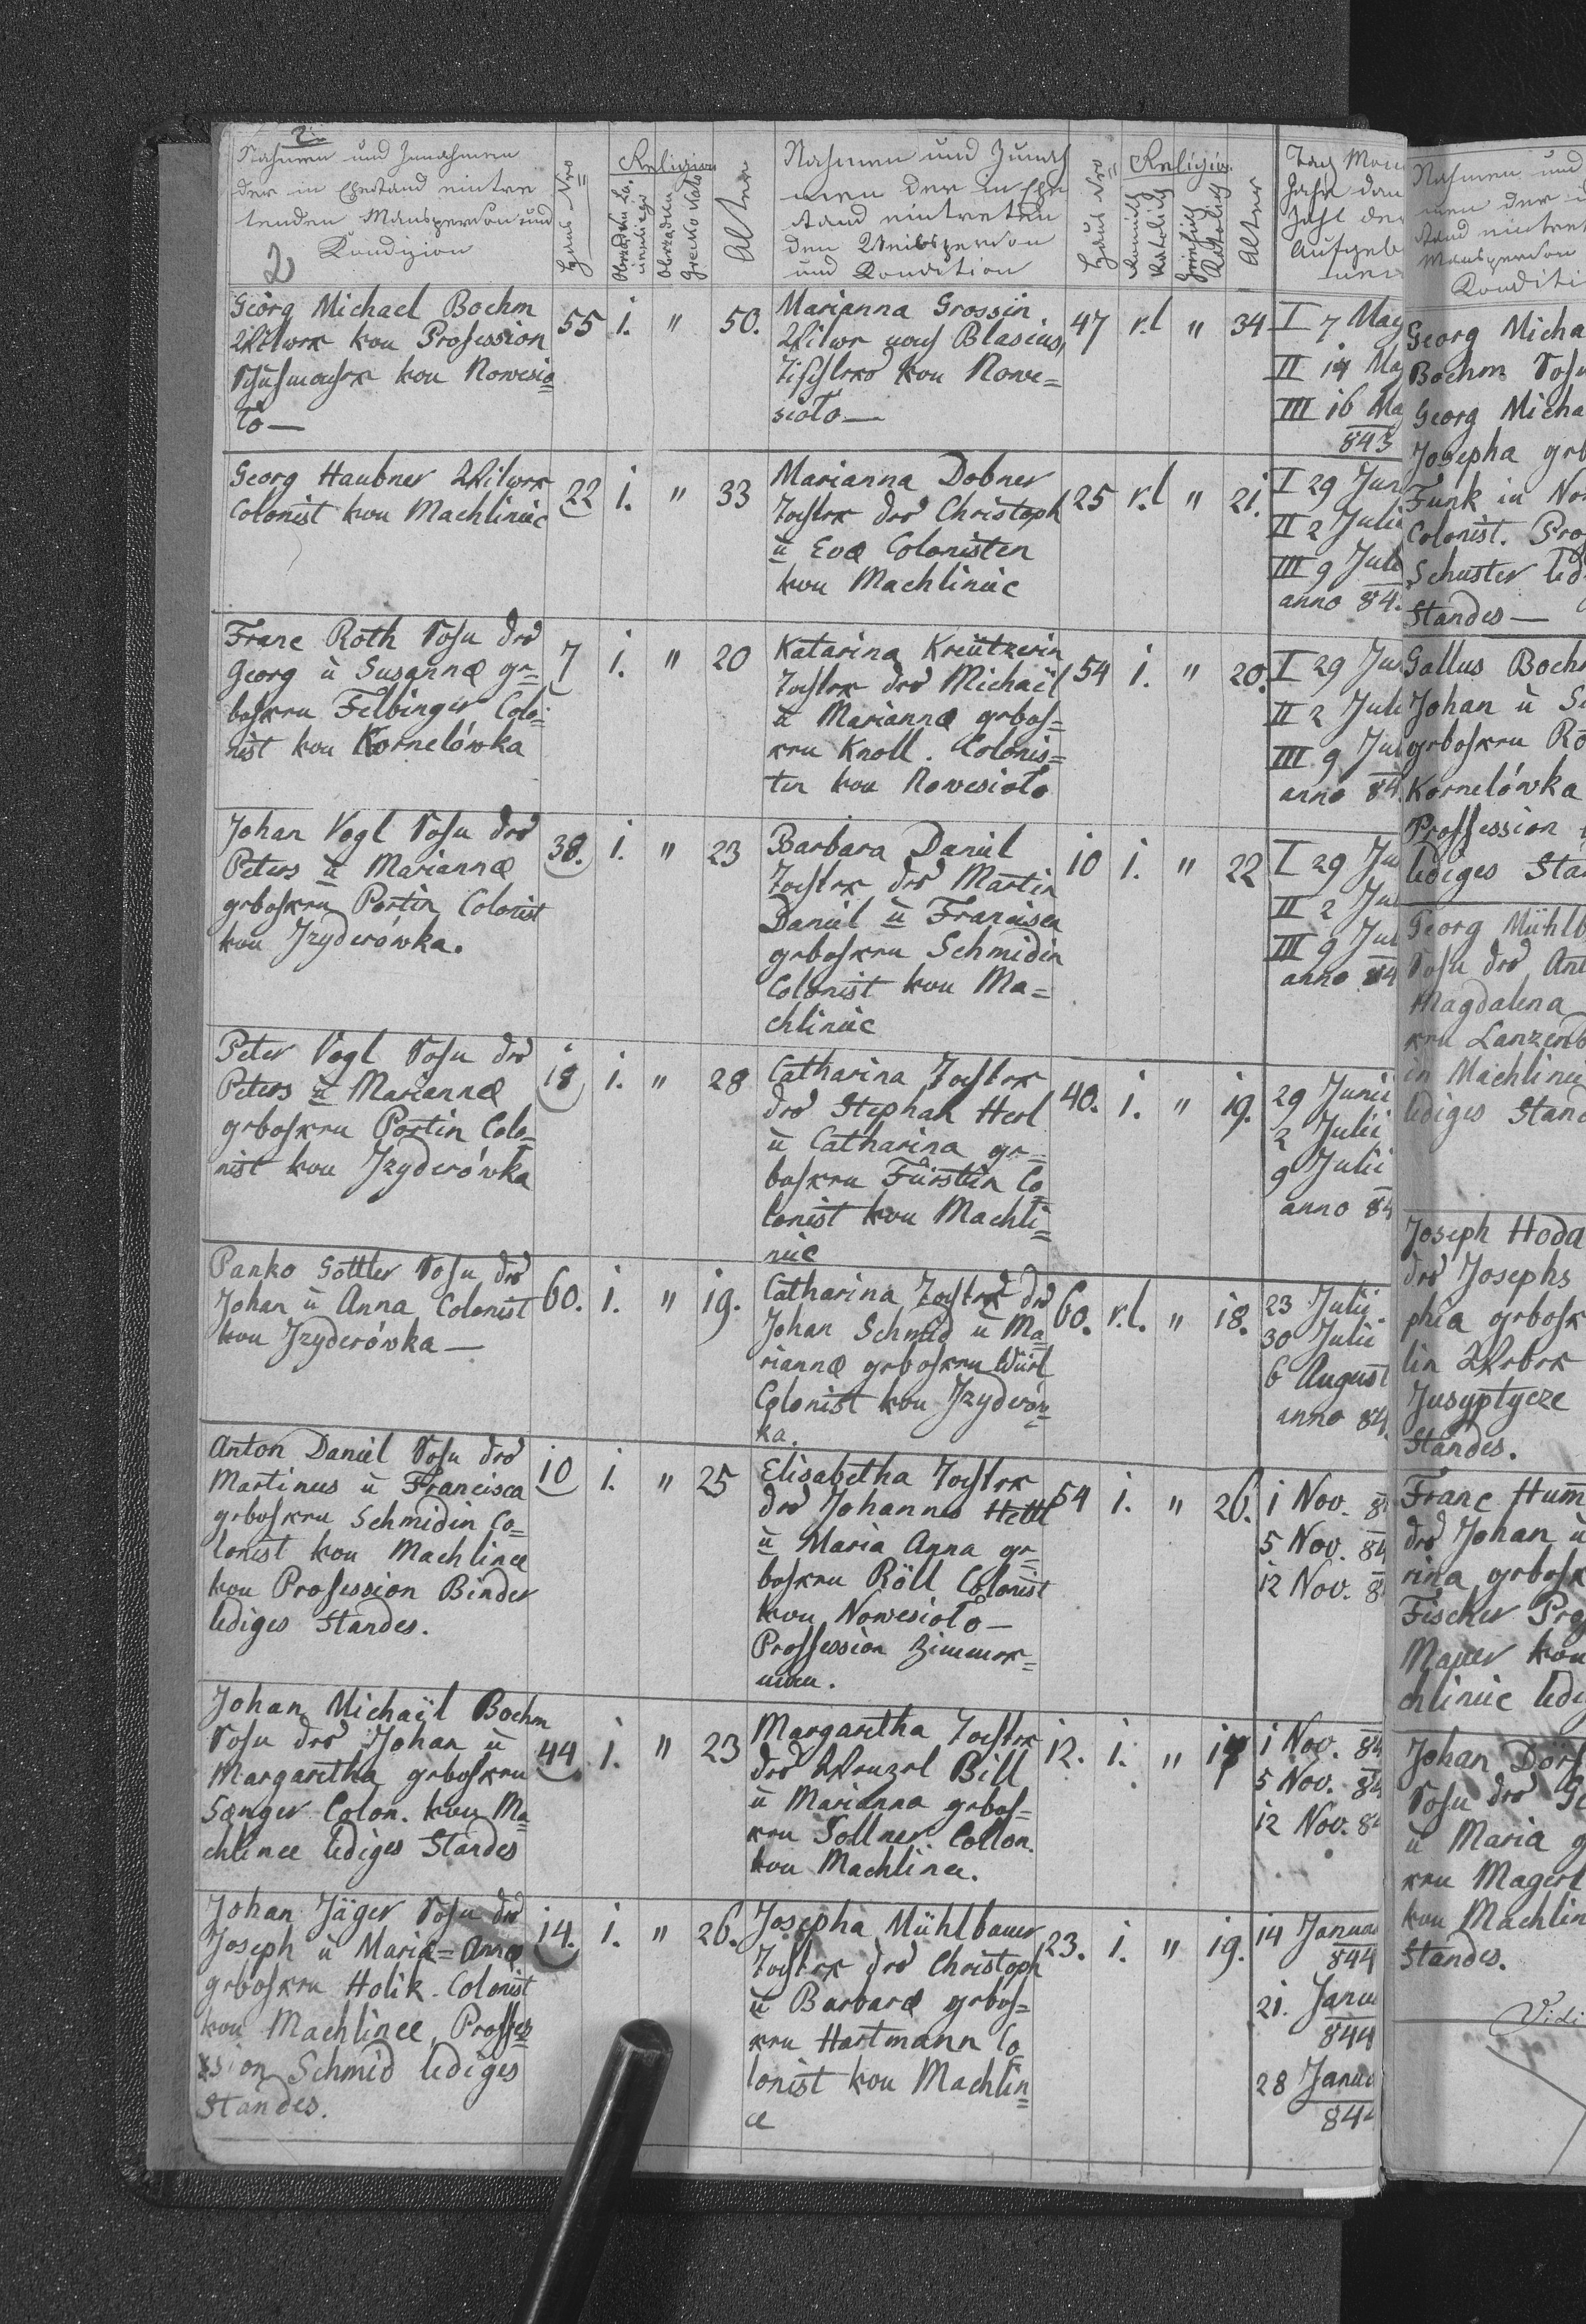 2.
Nahmen und Zunahmen
der in Ehestand eintre
tenden Mansperson und
Kondizion
2
Haus Nro
Religion
Obrządku Ła,
cinskiego
Obrządku
Grecko Kato
Alter
Nahmen und Zunah
men der in Ehe
stand eintreten
den Weibsperson
und Kondition
Haus Nro
Religion.
Römisch
Katolisch
Griechisch
Katholisch
Alter
Tag Mon
Jahr dan
Zahl der
Aufgeb
nen
Georg Michael Boehm
Witwer von Profession
Schuhmacher von Nowesio
ło—
55 i. " 50.
Marianna Grossin
Witwe nach Blasius,
Tischlers von Nowe=
sioło—
47 r.l " 34
I 7 May
II 14 May
III 16 Ma
843
Georg Haubner Witwer
Colonist von Machliniec
22 i. " 33
Marianna Dobner
Tochter des Christoph
ŭ Eva Colonisten
von Machliniec
25 r.l " 21.
I 29 Jun
II 2 Julii
III 9 Juli
anno 84
Franc Roth Sohn des
Georg ŭ Susanna ge=
bohren Felbinger Colo=
nist von Kornelówka
7 i. " 20
Katarina Kreützerin
Tochter des Michaël
ŭ Marianna geboh=
ren Knoll. Colonis=
ten von Nowesioło
54 i. " 20.
I 29 Jun
II 2 Juli
III 9 Jul
anno 84
Johan Vogl Sohn des
Peters ŭ Marianna
gebohren Portin Colonist
von Jzyderówka.
38. i. " 23
Barbara Daniel
Tochter des Martin
Daniel ŭ Francisca
gebohren Schmidin
Colonist von Ma=
chliniec
10 i. " 22
I 29 Ju
II 2 Ju
III 9 Jul
anno 84
Peter Vogl Sohn des
Peters ŭ Marianna
gebohren Portin Colo=
nist von Jzyderówka
18 i. " 28
Catharina Tochter
des Stephan Herl
ŭ Catharina ge=
bohren Fürstin Co
lonist von Machli=
niec
40. i. " 19.
29 Junii
2 Julii
9 Julii
anno 84
Panko Gottler Sohn des
Johan ŭ Anna Colonist
von Jzyderówka—
60. i. " 19.
Catharina Tochter des
Johan Schmid ŭ Ma
rianna gebohren Würl
Colonist von Jzyderów=
ka.
60. r.l. " 18.
23 Julii
30 Julii
6 August
anno 84
Anton Daniel Sohn des
Martinus ŭ Francisca
gebohren Schmidin Co=
lonist von Machlinee
von Profession Binder
lediges Standes.
10 i. " 25
Elisabetha Tochter
des Johannes Hettl
ŭ Maria Anna ge=
bohren Röll Colonist
von Nowesioło—
Proffession Zimmer=
man.
54 i. " 26.
1 Nov. 8
5 Nov. 84
12 Nov. 8
Johan Michaÿl Boehm
Sohn des Johan ŭ
Margaretha gebohren
Sanger Colon. von Ma
chlinee lediges Standes
44 i. " 23
Margaretha Tochter
des Wenzel Bill
ŭ Marianna geboh=
ren Sollner. Collon.
von Machlinee.
12. i. "
1 Nov. 84
5 Nov. 84
12 Nov. 84
Johan Jäger Sohn des
Joseph ŭ Maria=Anna
gebohren Holik. Colonist
von Machlinee, Proffes
sion Schmid lediges
Standes.
14. i. " 26.
Josepha Mühlbauer
Tochter des Christoph
ŭ Barbara geboh=
ren Hartmann Co
lonist von Machlin=
ee
23. i. " 19.
14 Januar
844
21. Janu
844
28 Janua
844
Nahmen und
men der i
stand eintret
Mansperson
Konditi
Georg Micha
Boehm Sohn
Georg Micha
Josepha geb
Funk in No
Colonist. Prof
Schuster led
Standes—
Gallus Boeh
Johan ŭ S
gebohren Ro
Kornelówka
Proffession
lediges Sta
Georg Mühlb
Sohn des Ant
Magdalena
ren Lanzenb
in Machlinee
lediges Stand
Joseph Hoda
des Josephs
phia gebohr
lin Weber
Jusyptycze
Standes.
Franc Humm
des Johan ŭ
rina gebohr
Fischer Prof
Mauer von
chliniec ledi
Johan Dorf
Sohn des Ge
ŭ Maria g
ren Magerl
von Machlin
Standes.
Vidi